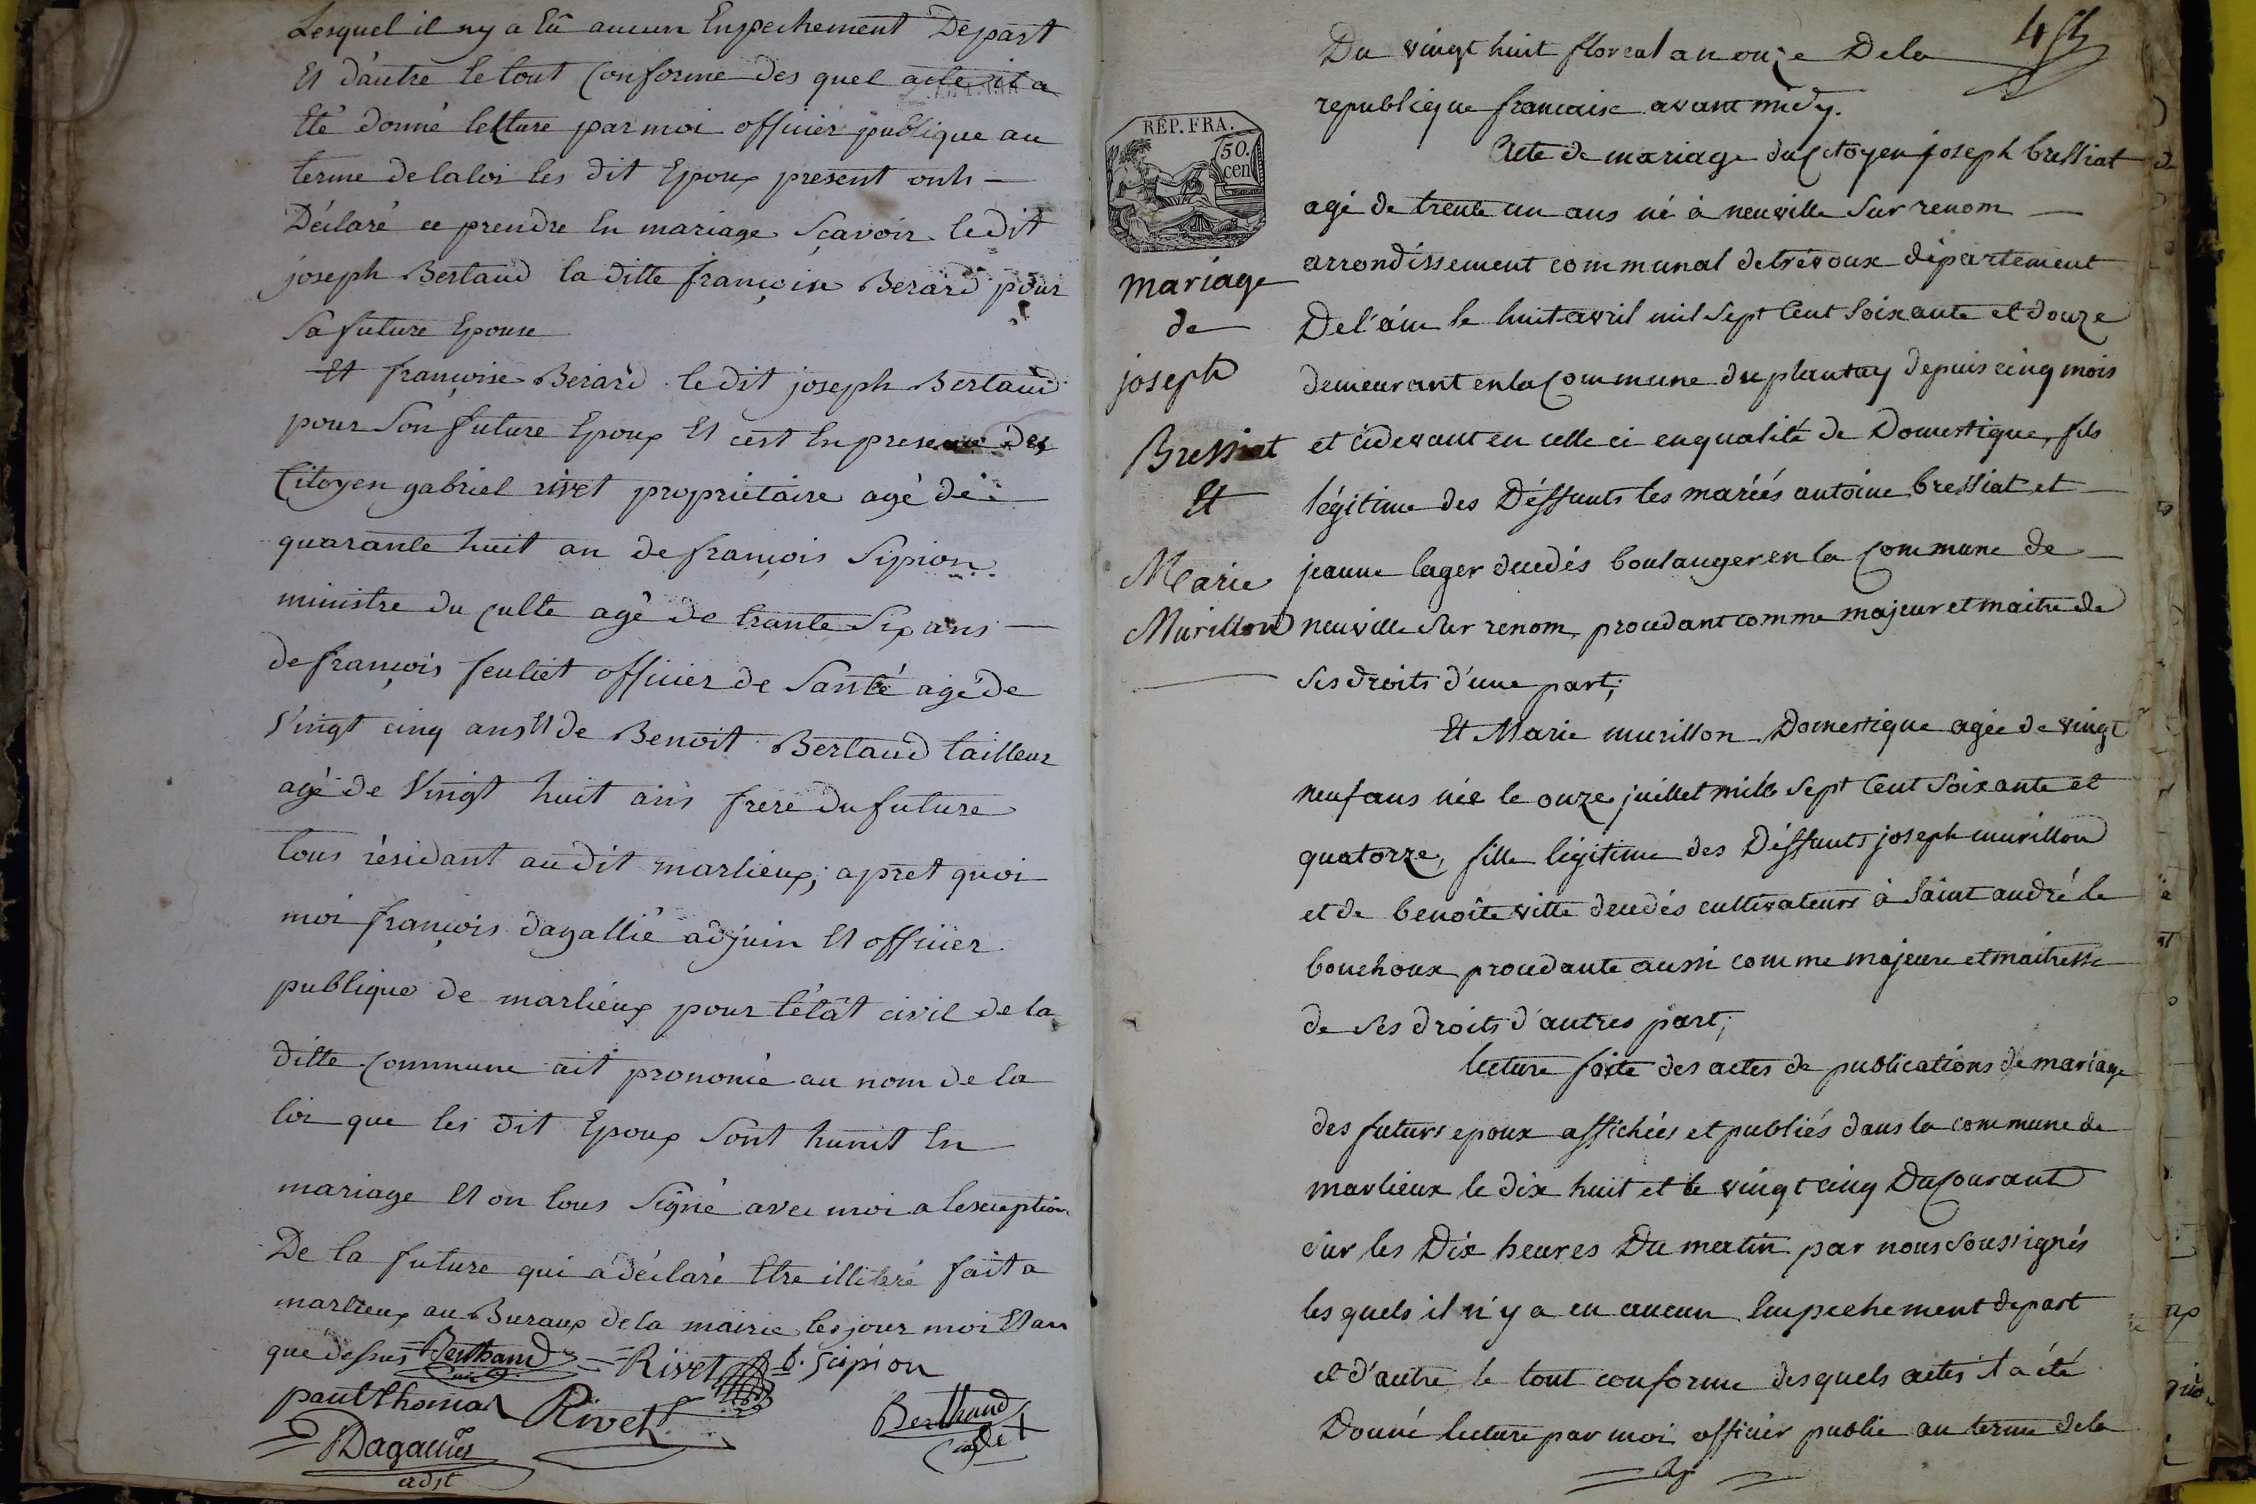 Lesquel il ny a Eû aucun Enpechement Depart
Et d'autre le tout Conforme des quel acte il a
Eté donné lecture par moi officier publique au
terme de la loi les dit Epoux present onts
Déclaré ce prendre En mariage Sçavoir le dit
joseph Bertaud la ditte françoise Berard pour
Sa future Epouse
Et françoise Berard le dit joseph Bertaud
pour Son future Epoux Et cest En presence des
Citoyen gabriel rivet proprietaire agé de
quarante huit an de françois Sipion
ministre du culte agé de trante Six ans
de françois feuliet officier de Santé agé de
Vingt cinq ans Et de Benoit Bertaud tailleur
agé de Vingt huit ans frere du future
tous résidant au dit marlieux; apret quoi
moi françois dagallié adjuin Et officier
publique de marlieux pour l'étât civil de la
ditte Commune ait prononcé au nom de la
loi que les dit Epoux Sont hunit En
mariage Et on tous Signé avec moi a lexception
De la future qui a déclaré Etre illiteré fait a
marlieux au Buraux de la mairie les jour moi Et an
que dessus Berthaud Rivet f. Scipion
paul thomas Rivet Berthaud
Dagallier
adjt
45
Du vingt huit floreal an onze De la
republique francaise avant midy.
RÉP. FRA.
50.
cen
Acte de mariage du Citoyen joseph bressiat
agé de trente un ans né à neuville Sur renom
arrondissement communal de trévoux département
De l'ain le huit avril mil Sept Cent Soixante et douze
demeurant en la Commune du plantay depuis cinq mois
et cidevant en celle ci en qualité de Domestique, fils
légitime des Déffunts les mariés antoine bressiat et
jeanne lager decedés boulanger en la Commune de
neuville Sur renom, procédant comme majeur et maitre de
Ses droits d'une part;
mariage
de
joseph
Bressiat
Et
Marie
Murillon
Et Marie murillon Domestique agée de vingt
neuf ans née le onze juillet mille Sept Cent Soixante et
quatorze, fille légitime des Déffunts joseph murillon
et de benoîte vitte decedés cultivateurs à Saint andré le
bouchoux procedante aussi comme majeure et maitresse
de Ses droits d'autres part;
lecture faite des actes de publications de mariage
des futurs epoux affichées et publiés dans la commune de
marlieux le dix huit et le vingt cinq Du Courant
Sur les Dix heures Du matin par nous Soussignés
les quels il n'y a eu aucun Empechement depart
et d'autre le tout conforme desquels actes il a été
Donné lecture par moi officier public au terme de la